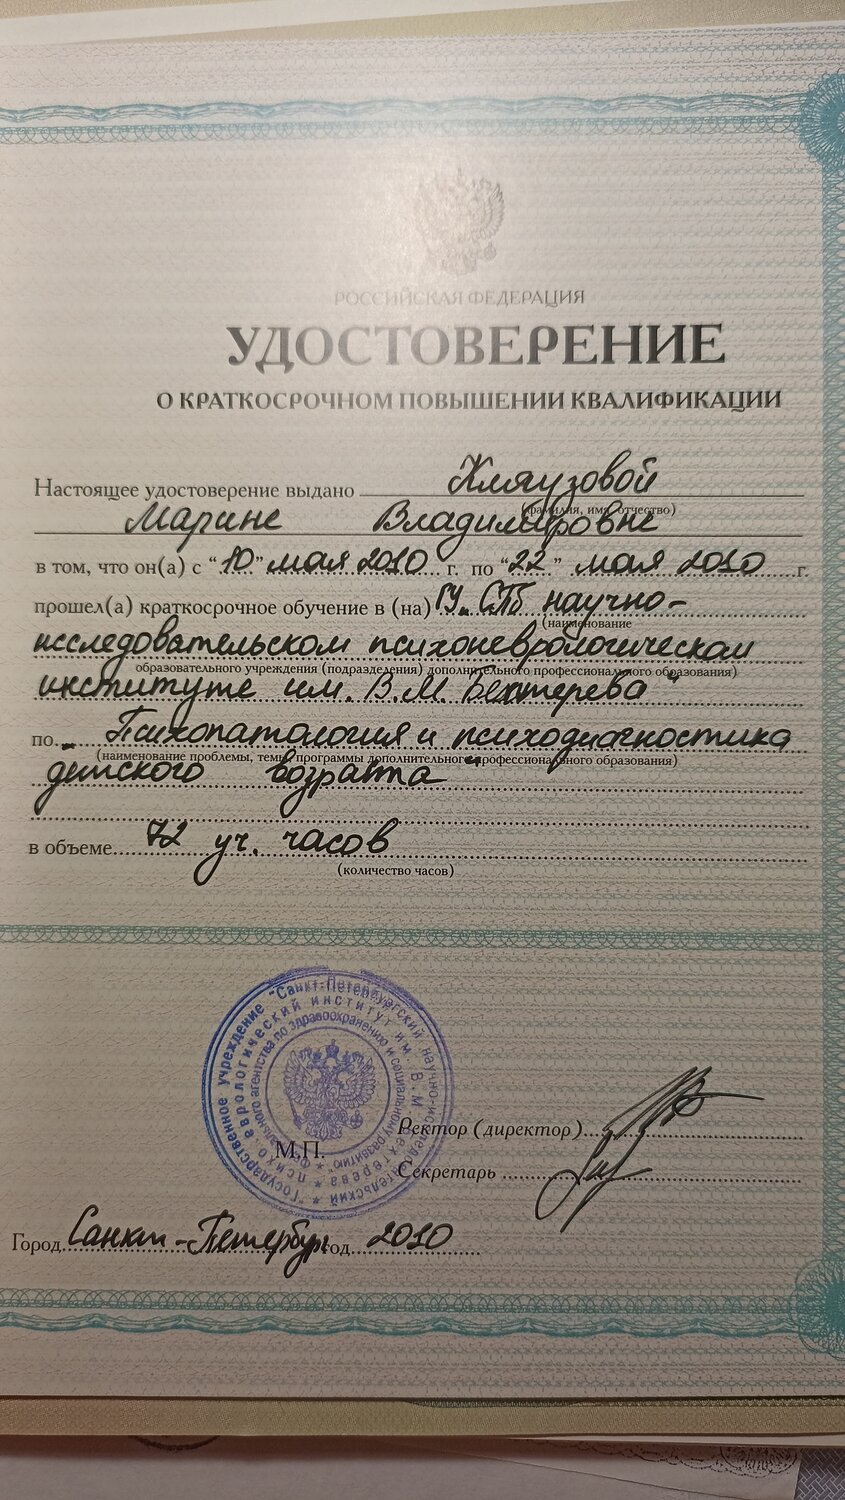 РОССИЙСКАЯ ФЕДЕРАЦИЯ
УДОСТОВЕРЕНИЕ
О КРАТКОСРОЧНОМ ПОВЫШЕНИИ КВАЛИФИКАЦИИ
Настоящее удостоверение выдано Хмяузовой
(фамилия, имя, отчество)
Марине Владимировне
в том, что он(а) с “10” мая 2010 г. по “22” мая 2010 г.
прошел(а) краткосрочное обучение в (на) ГУ „СПб научно-
(наименование
исследовательском психоневрологическом
образовательного учреждения (подразделения) дополнительного профессионального образования)
институте им. В.М. Бехтерева"
по „Психопатология и психодиагностика
(наименование проблемы, темы, программы дополнительного профессионального образования)
детского возраста"
в объеме 72 уч. часов
(количество часов)
Государственное учреждение "Санкт-Петербургский научно-исследовательский
психоневрологический институт им. В.М. Бехтерева
Федерального агентства по здравоохранению и социальному развитию"
М.П.
Ректор (директор)
Секретарь
Город Санкт-Петербург год 2010